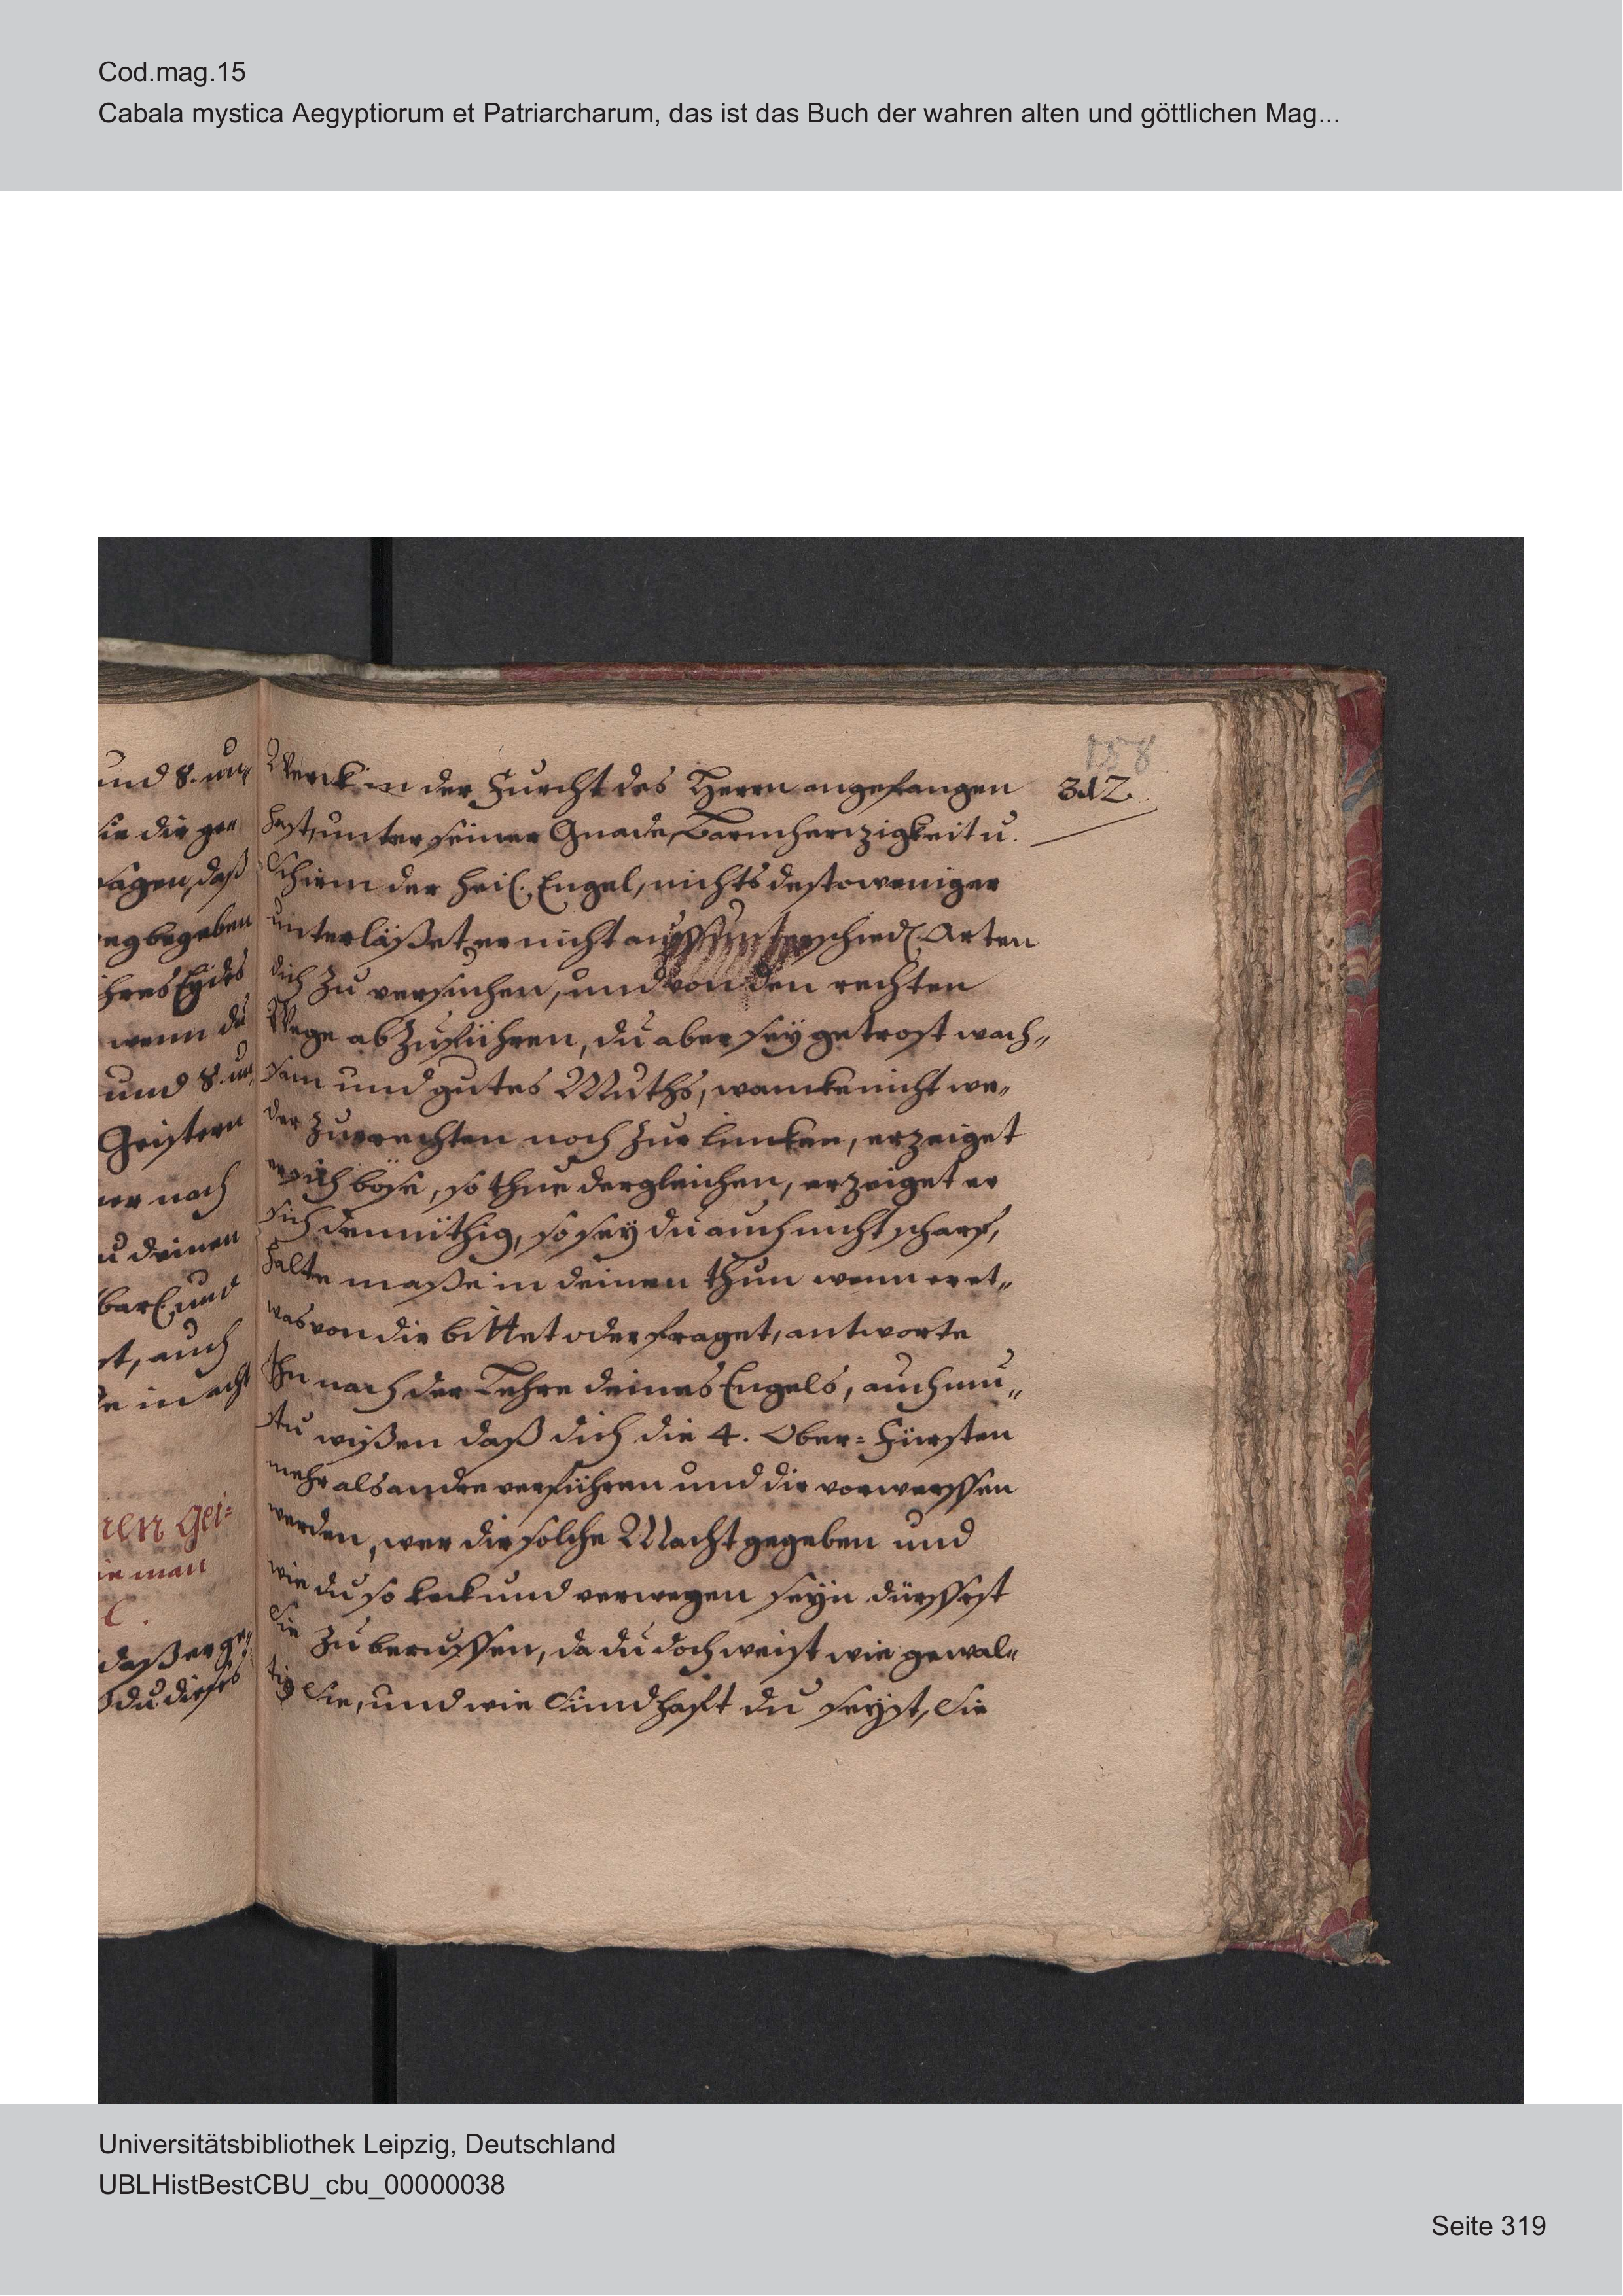 Cod.mag.15
Cabala mystica Aegyptiorum et Patriarcharum, das ist das Buch der wahren alten und göttlichen Mag...
158
312.
und 8. un„
sie dir ge„
sagen, daß
begeben
ihres Eydes
wenn du
und 8. un„
Geistern
nach
deinen
und
auch
in acht
ren Gei=
man
daß er ge„
du dieses
Werck in der Furcht des Herrn angefangen
hast, unter seiner Gnade, Barmhertzigkeit u.
Schirm der heil. Engel, nichts destoweniger
unterläßet er nicht auff unterschiedl. Arten
dich zu versuchen, und von den rechten
Wege abzuführen, du aber sey getrost wach„
sam und gutes Muths, wancke nicht we„
der zur rechten noch zur lincken, erzeiget
er sich böse, so thue dergleichen, erzeiget er
sich demüthig, so sey du auch nicht scharf,
halte maße in deinen thun wenn er et„
was von dir bittet oder fraget, antworte
Ihn nach der Lehre deines Engels, auch mu„
stu wißen daß dich die 4. Ober=Fürsten
mehr als andre verführen und dir vorwerffen
werden, wer dir solche Macht gegeben und
wie du so keck und verwegen seyn dürffest
Sie zu beruffen, da du doch weist wie gewal„
tig Sie, und wie Sündhaft du seyst, Sie
Universitätsbibliothek Leipzig, Deutschland
UBLHistBestCBU_cbu_00000038
Seite 319